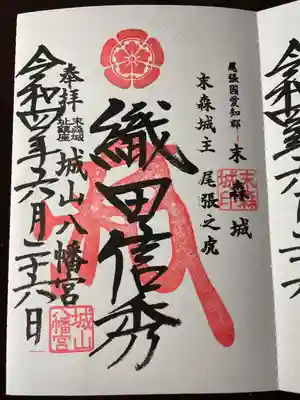 尾張國愛知郡 末森城
末森城主 尾張之虎
織田信秀
奉拝 末森城址鎮座 城山八幡宮
令和四年六月二十六日
城山八幡宮